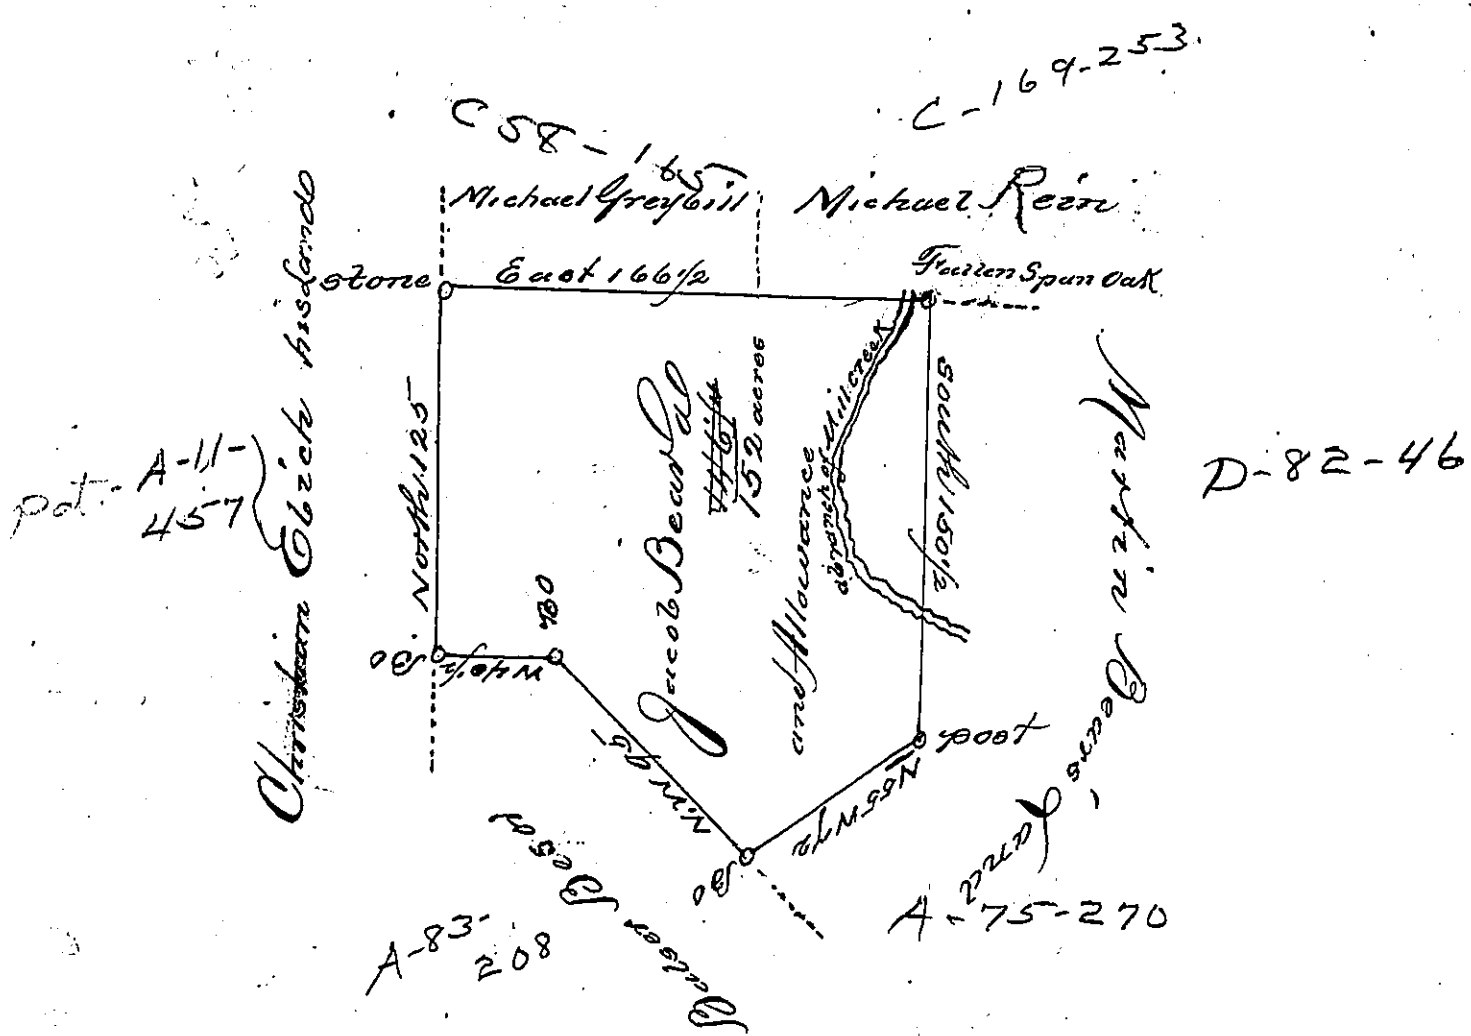 C-169-253.
C 58-165
Michael Greybill
Michael Rein
stone
East 166 1/2
Fallen Span Oak
Christian Ebich his land
pat. A-11-
457
North 125
Jacob Bear
152 acres
and Allowance
a branch of Mill creek
South 150 1/2
Martin Bear's Land
D-82-46
BO
W 40 1/2
BO
N.W 95
BO
S55W 72
post
A-75-270
A-83-
208